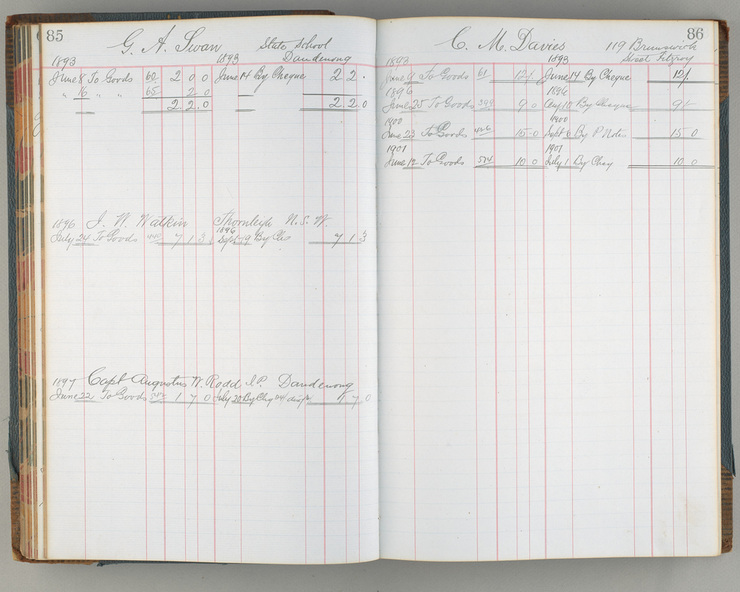 85
G. A. Swan State School
1893 1893 Dandenong
June 8 To Goods 60 2 0 0 June 14 By Cheque 2 2 .
" 16 " " 65 2 0
2 2 . 0 2 2 0
1896 J. W. Watkin Thornleigh N. S. W.
1896
July 24 To Goods 7 1 3 Sept 9 By Chs 7 1 3
1897 Capt Augustus W. Rodd J.P. Dandenong
June 22 To Goods 1 7 0 July 20 By Chq 1 7 0
86
C. M. Davies 119 Brunswick
1893 1893 Street Fitzroy
June 9 To Goods 61 12/ June 14 By Cheque 12/
1896 1896
June 25 To Goods 9 0 Aug 10 By Cheque 9/-
1900 1900
June 23 To Goods 15 0 Sept 6 By P Note 15 0
1901 1901
June 12 To Goods 574 10 0 July 1 By Chq 10 0